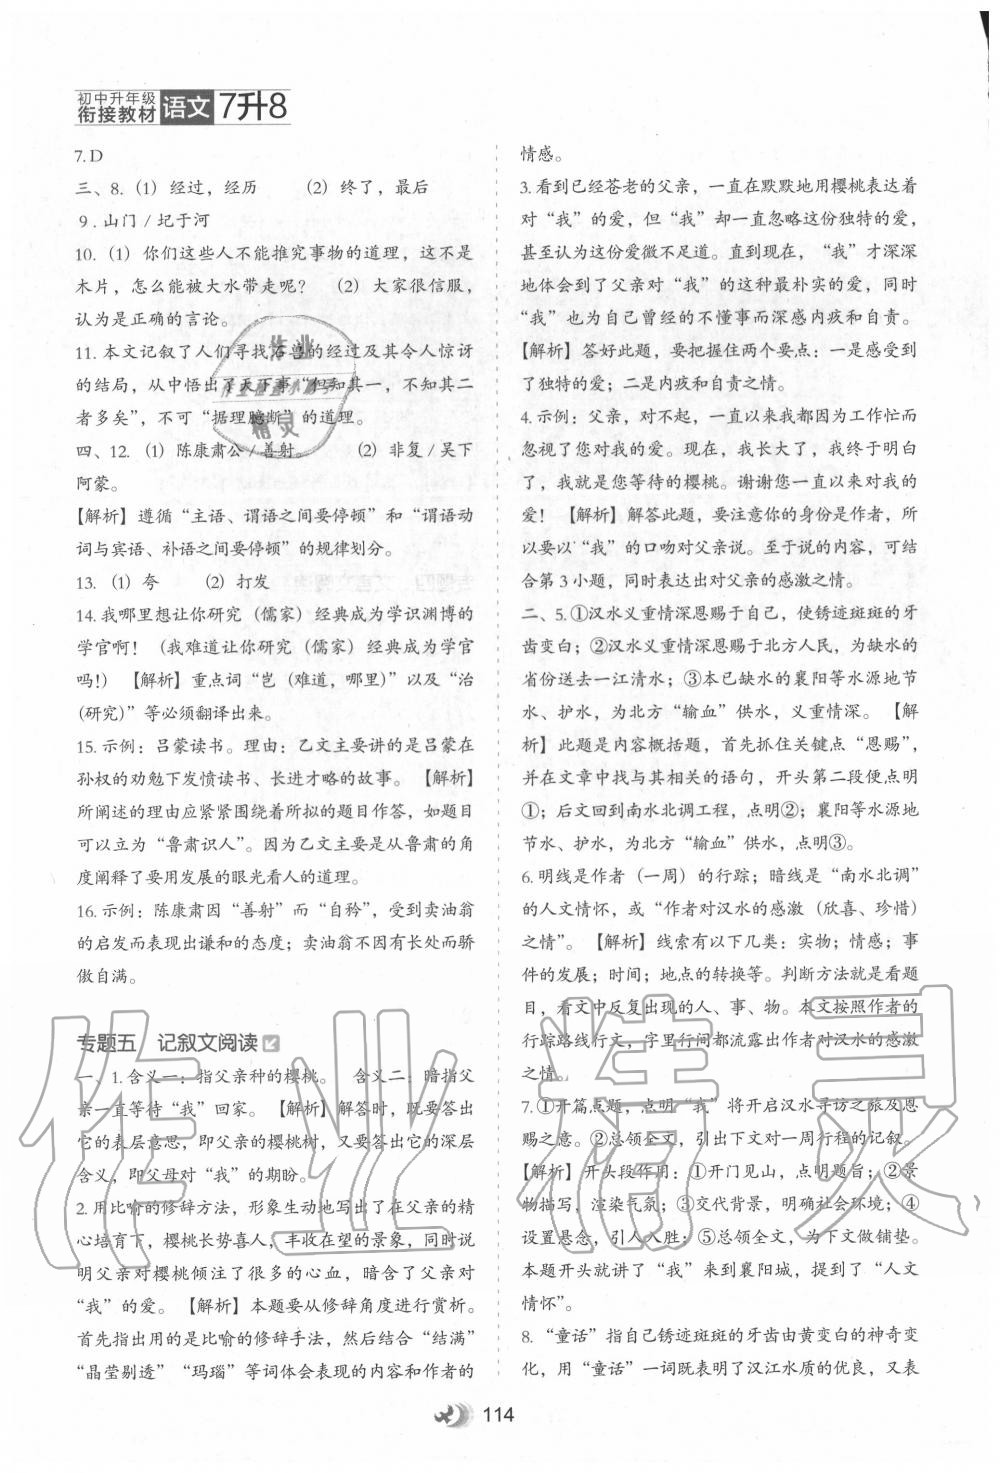 初中升年级
衔接教材 语文 7升8
7.D
三、8.（1）经过，经历 （2）终了，最后
9.山门/圮于河
10.（1）你们这些人不能推究事物的道理，这不是
木片，怎么能被大水带走呢？ （2）大家很信服，
认为是正确的言论。
11.本文记叙了人们寻找石兽的经过及其令人惊讶
的结局，从中悟出了天下事“但知其一，不知其二
者多矣”，不可“据理臆断”的道理。
四、12.（1）陈康肃公/善射。 （2）非复/吴下
阿蒙。
【解析】遵循“主语、谓语之间要停顿”和“谓语动
词与宾语、补语之间要停顿”的规律划分。
13.（1）夸 （2）打发
14.我哪里想让你研究（儒家）经典成为学识渊博的
学官啊！（我难道让你研究（儒家）经典成为学官
吗！） 【解析】重点词“岂（难道，哪里）”以及“治
（研究）”等必须翻译出来。
15.示例：吕蒙读书。理由：乙文主要讲的是吕蒙在
孙权的劝勉下发愤读书、长进才略的故事。 【解析】
所阐述的理由应紧紧围绕着所拟的题目作答，如题目
可以立为“鲁肃识人”。因为乙文主要是从鲁肃的角
度阐释了要用发展的眼光看人的道理。
16.示例：陈康肃因“善射”而“自矜”，受到卖油翁
的启发而表现出谦和的态度；卖油翁不因有长处而骄
傲自满。
专题五 记叙文阅读
一、1.含义一：指父亲种的樱桃。 含义二：暗指父
亲一直等待“我”回家。 【解析】解答时，既要答出
它的表层意思，即父亲的樱桃树，又要答出它的深层
含义，即父母对“我”的期盼。
2.用比喻的修辞方法，形象生动地写出了在父亲的精
心培育下，樱桃长势喜人，丰收在望的景象，同时说
明父亲对樱桃倾注了很多的心血，暗含了父亲对
“我”的爱。 【解析】本题要从修辞角度进行赏析。
首先指出用的是比喻的修辞手法，然后结合“结满”
“晶莹剔透”“玛瑙”等词体会表现的内容和作者的
情感。
3.看到已经苍老的父亲，一直在默默地用樱桃表达着
对“我”的爱，但“我”却一直忽略这份独特的爱，
甚至忽视这份爱微不足道。直到现在，“我”才深深
地体会到了父亲对“我”的这种最朴实的爱，同时
“我”也为自己曾经的不懂事而深感内疚和自责。
【解析】答好此题，要把握住两个要点：一是感受到
了独特的爱；二是内疚和自责之情。
4.示例：父亲，对不起，一直以来我都因为工作忙而
忽视了您对我的爱。现在，我长大了，我终于明白
了，我就是您等待的樱桃。谢谢您一直以来对我的
爱！ 【解析】解答此题，要注意你的身份是作者，所
以要以“我”的口吻对父亲说。至于说的内容，可结
合第3小题，同时表达出对父亲的感激之情。
二、5.①汉水义重情深恩赐于自己，使锈迹斑斑的牙
齿变白；②汉水义重情深恩赐于北方人民，为缺水的
省份送去一江清水；③本已缺水的襄阳等水源地节
水、护水，为北方“输血”供水，义重情深。 【解
析】此题是内容概括题，首先抓住关键点“恩赐”，
并在文章中找与其相关的语句，开头第二段便点明
①；后文回到南水北调工程，点明②；襄阳等水源地
节水、护水，为北方“输血”供水，点明③。
6.明线是作者（一周）的行踪；暗线是“南水北调”
的人文情怀，或“作者对汉水的感激（欣喜、珍惜）
之情”。 【解析】线索有以下几类：实物；情感；事
件的发展；时间；地点的转换等。判断方法就是看题
目，看文中反复出现的人、事、物。本文按照作者的
行踪路线行文，字里行间都流露出作者对汉水的感激
之情。
7.①开篇点题，点明“我”将开启汉水寻访之旅及恩
赐之意。②总领全文，引出下文对一周行程的记叙。
【解析】开头段作用：①开门见山，点明题旨；②景
物描写，渲染气氛；③交代背景，明确社会环境；④
设置悬念，引人入胜；⑤总领全文，为下文做铺垫。
本题开头就讲了“我”来到襄阳城，提到了“人文
情怀”。
8.“童话”指自己锈迹斑斑的牙齿由黄变白的神奇变
化，用“童话”一词既表明了汉江水质的优良，又表
114
作业精灵